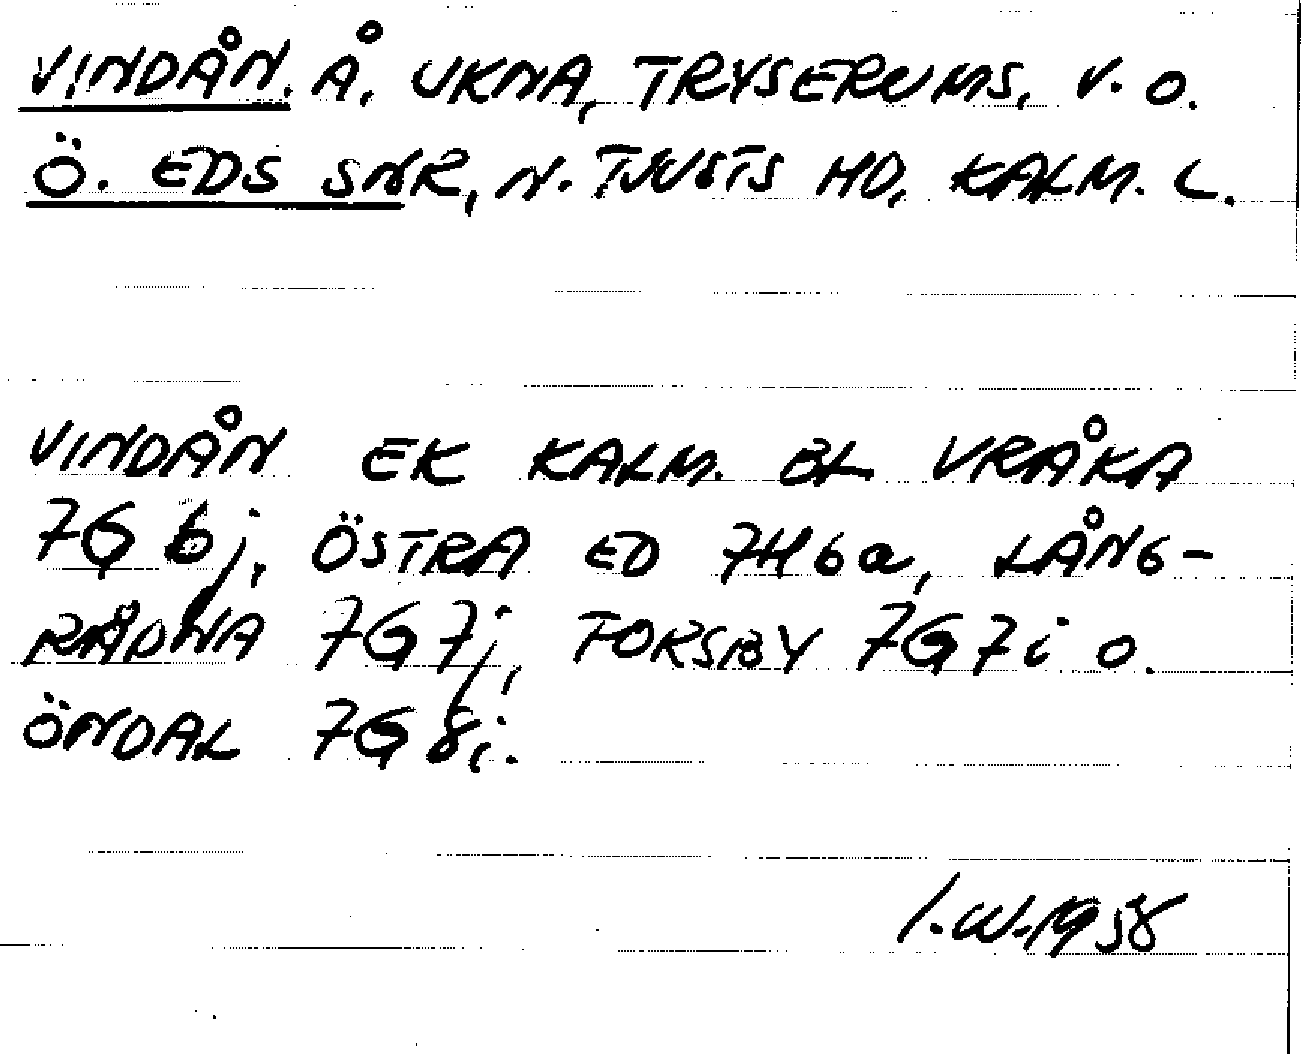 VINDÅN. Å, UKNA, TRYSERUMS, V. O.
Ö. EDS SNR, N. TJUSTS HD, KALM. L.
VINDÅN EK KALM. BL VRÅKA
7G 6j, ÖSTRA ED 7H6a, LÅNG-
RÅDNA 7G7j, FORSBY 7G7i O.
ÖNDAL 7G8i.
I.W.1958